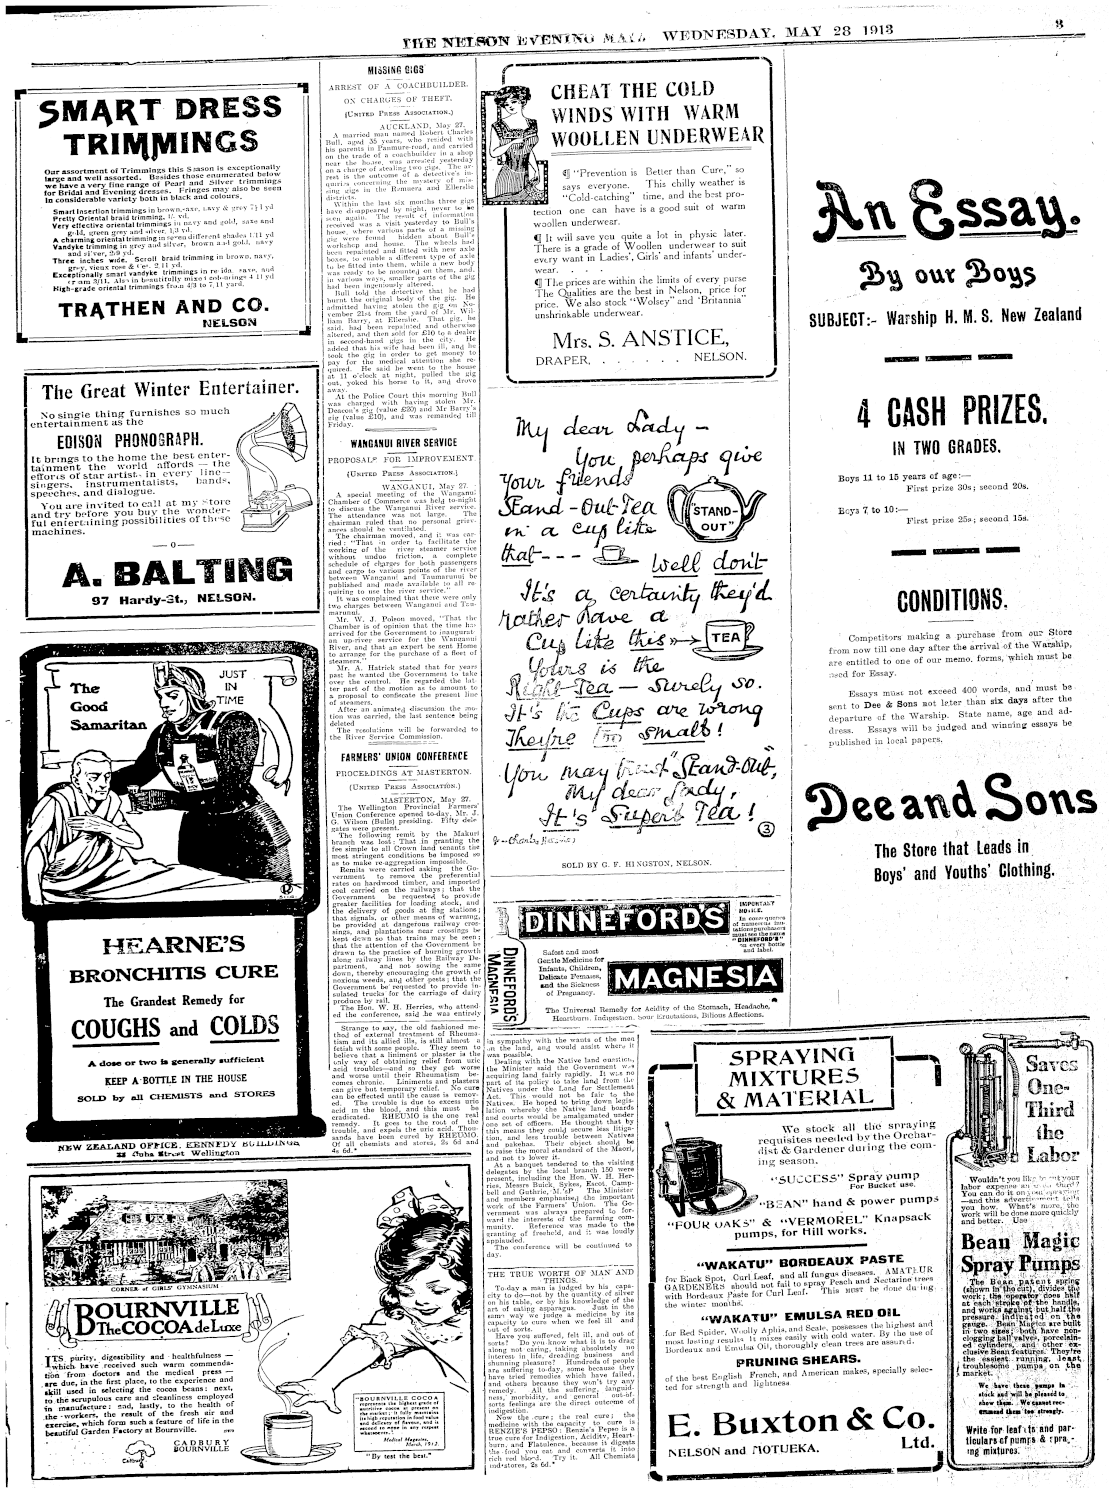 THE NELSON EVENING MAIL WEDNESDAY, MAY 28 1913
3
SMART DRESS
TRIMMINGS
Our assortment of Trimmings this Season is exceptionally
large and well assorted. Besides those enumerated below
we have a very fine range of Pearl and Silver trimmings
for Bridal and Evening dresses. Fringes may also be seen
in considerable variety both in black and colours.
Smart Insertion trimmings in brown, navy & grey
Pretty Oriental braid trimming,
Very effective oriental trimming in navy and gold, saxe and
gold, green grey and silver, 1,3 yd.
A charming oriental trimming in seven different shades 1/11 yd
Vandyke trimming in grey and silver, brown and gold, navy
and silver, 2/9 yd.
Three inches wide, Scroll braid trimming in brown, navy,
grey, vieux rose &
Exceptionally smart vandyke trimmings in
High-grade oriental trimmings from 4/3 to 7,11 yard.
TRATHEN AND CO.
NELSON
The Great Winter Entertainer.
No single thing furnishes so much
entertainment as the
EDISON PHONOGRAPH.
It brings to the home the best enter-
tainment the world affords — the
efforts of star artists in every line—
singers, instrumentalists, bands,
speeches, and dialogue.
You are invited to call at my store
and try before you buy the wonder-
ful entertaining possibilities of these
machines.
—o—
A. BALTING
97 Hardy-St., NELSON.
The
Good
Samaritan
JUST
IN
TIME
HEARNE'S
BRONCHITIS CURE
The Grandest Remedy for
COUGHS and COLDS
A dose or two is generally sufficient
KEEP A BOTTLE IN THE HOUSE
SOLD by all CHEMISTS and STORES
NEW ZEALAND OFFICE, KENNEDY BUILDINGS
Cuba Street Wellington
CORNER of GIRLS' GYMNASIUM
BOURNVILLE
The COCOA de Luxe
ITS purity, digestibility and healthfulness —
which have received such warm commenda-
tion from doctors and the medical press —
are due, in the first place, to the experience and
skill used in selecting the cocoa beans; next,
to the scrupulous care and cleanliness employed
in manufacture; and, lastly, to the health of
the workers, the result of the fresh air and
exercise, which form such a feature of life in the
beautiful Garden Factory at Bournville.
CADBURY
BOURNVILLE
Cadbury
"BOURNVILLE COCOA
represents the highest grade of
nutritive cocoa at present on
the market; it fully maintains
its high reputation in food value
and delicacy of flavour, and is
second to none in any respect
whatsoever."
Medical Magazine,
March, 1912.
"By test the best."
MISSING GIGS
ARREST OF A COACHBUILDER.
ON CHARGES OF THEFT.
(UNITED PRESS ASSOCIATION.)
AUCKLAND, May 27.
A married man named Robert Charles
Bull, aged 35 years, who resided with
his parents in Panmure-road, and carried
on the trade of a coachbuilder in a shop
near the house, was arrested yesterday
on a charge of stealing two gigs. The ar-
rest is the outcome of a detective's in-
quiries concerning the mystery of mis-
sing gigs in the Remuera and Ellerslie
districts.
Within the last six months three gigs
have disappeared by night, never to be
seen again. The result of information
received was a visit yesterday to Bull's
house, where various parts of a missing
gig were found hidden about Bull's
workshop and house. The wheels had
been repainted and fitted with new axle
boxes, to enable a different type of axle
to be fitted into them, while a new body
was ready to be mounted on them, and,
in various ways, smaller parts of the gig
had been ingeniously altered.
Bull told the detective that he had
burnt the original body of the gig. He
admitted having stolen the gig on No-
vember 21st from the yard of Mr. Wil-
liam Barry, at Ellerslie. That gig, he
said, had been repainted and otherwise
altered, and then sold for £10 to a dealer
in second-hand gigs in the city. He
added that his wife had been ill, and he
took the gig in order to get money to
pay for the medical attention she re-
quired. He said he went to the house
at 11 o'clock at night, pulled the gig
out, yoked his horse to it, and drove
away.
At the Police Court this morning Bull
was charged with having stolen Mr.
Deacon's gig (value £20) and Mr Barry's
gig (value £10), and was remanded till
Friday.
WANGANUI RIVER SERVICE
PROPOSALS FOR IMPROVEMENT
(UNITED PRESS ASSOCIATION.)
WANGANUI, May 27.
A special meeting of the Wanganui
Chamber of Commerce was held to-night
to discuss the Wanganui River service.
The attendance was not large. The
chairman ruled that no personal griev-
ances should be ventilated.
The chairman moved, and it was car-
ried: "That in order to facilitate the
working of the river steamer service
without undue friction, a complete
schedule of charges for both passengers
and cargo to various points of the river
between Wanganui and Taumarunui be
published and made available to all re-
quiring to use the river service."
It was complained that there were only
two charges between Wanganui and Tau-
marunui.
Mr. W. J. Polson moved, "That the
Chamber is of opinion that the time has
arrived for the Government to inaugurate
an up-river service for the Wanganui
River, and that an expert be sent Home
to arrange for the purchase of a fleet of
steamers."
Mr. A. Hatrick stated that for years
past he wanted the Government to take
over the control. He regarded the lat-
ter part of the motion as to amount to
a proposal to confiscate the present line
of steamers.
After an animated discussion the mo-
tion was carried, the last sentence being
deleted
The resolutions will be forwarded to
the River Service Commission.
FARMERS' UNION CONFERENCE
PROCEEDINGS AT MASTERTON.
(UNITED PRESS ASSOCIATION.)
MASTERTON, May 27.
The Wellington Provincial Farmers'
Union Conference opened to-day, Mr. J.
G. Wilson (Bulls) presiding. Fifty dele-
gates were present.
The following remit by the Makuri
branch was lost: That in granting the
fee simple to all Crown land tenants the
most stringent conditions be imposed so
as to make re-aggregation impossible.
Remits were carried asking the Go-
vernment to remove the preferential
rates on hardwood timber, and imported
coal carried on the railways; that the
Government be requested to provide
greater facilities for loading stock, and
the delivery of goods at flag stations;
that signals, or other means of warning,
be provided at dangerous railway cros-
sings, and plantations near crossings be
kept down so that trains may be seen;
that the attention of the Government be
drawn to the practice of burning growth
along railway lines by the Railway De-
partment, and not sowing the same
down, thereby encouraging the growth of
noxious weeds, and other pests; that the
Government be requested to provide in-
sulated trucks for the carriage of dairy
produce by rail.
The Hon. W. H. Herries, who attend-
ed the conference, said he was entirely
Strange to say, the old fashioned me-
thod of external treatment of Rheuma-
tism and its allied ills, is still almost a
fetish with some people. They seem to
believe that a liniment or plaster is the
only way of obtaining relief from uric
acid troubles—and so they get worse
and worse until their Rheumatism be-
comes chronic. Liniments and plasters
can give but temporary relief. No cure
can be effected until the cause is remov-
ed. The trouble is due to excess uric
acid in the blood, and this must be
eradicated. RHEUMO is the one real
remedy. It goes to the root of the
trouble, and expels the uric acid. Thou-
sands have been cured by RHEUMO.
Of all chemists and stores, 2s 6d and
4s 6d.*
CHEAT THE COLD
WINDS WITH WARM
WOOLLEN UNDERWEAR
¶ "Prevention is Better than Cure," so
says everyone. This chilly weather is
"Cold-catching" time, and the best pro-
tection one can have is a good suit of warm
woollen underwear.
¶ It will save you quite a lot in physic later.
There is a grade of Woollen underwear to suit
every want in Ladies', Girls' and infants' under-
wear.
¶ The prices are within the limits of every purse
The Qualities are the best in Nelson, price for
price. We also stock "Wolsey" and 'Britannia"
unshrinkable underwear.
Mrs. S. ANSTICE,
DRAPER, . . . . . . NELSON.
My dear Lady —
You, perhaps give
Your friends
Stand-Out-Tea
in a cup like
that---
STAND-
OUT"
Well don't
It's a certainty they'd
rather have a
Cup like this
TEA
Yours is the
Right-Tea — surely so.
It's the Cups are wrong
They're too small!
You may trust "Stand-Out",
My dear Lady,
It's Superb Tea!
3
SOLD BY G. F. HINGSTON, NELSON.
DINNEFORD'S
MAGNESIA
DINNEFORD'S
MAGNESIA
IMPORTANT
NOTICE.
In consequence
of numerous imi-
tations purchasers
must see the name
"DINNEFORD'S"
on every bottle
and label.
Safest and most
Gentle Medicine for
Infants, Children,
Delicate Females,
and the Sickness
of Pregnancy.
The Universal Remedy for Acidity of the Stomach, Headache,
Heartburn, Indigestion, Sour Eructations, Bilious Affections.
in sympathy with the wants of the men
on the land, and would assist where it
was possible.
Dealing with the Native land question,
the Minister said the Government was
acquiring land fairly rapidly. It was no
part of its policy to take land from the
Natives under the Land for Settlement
Act. This would not be fair to the
Natives. He hoped to bring down legis-
lation whereby the Native land boards
and courts would be amalgamated under
one set of officers. He thought that by
this means they could secure less litiga-
tion, and less trouble between Natives
and pakehas. Their object should be
to raise the moral standard of the Maori,
and not to lower it.
At a banquet tendered to the visiting
delegates by the local branch 150 were
present, including the Hon. W. H. Her-
ries, Messrs Buick, Sykes, Escot, Camp-
bell and Guthrie, M.'sP The Minister
and members emphasised the important
work of the Farmers' Union. The Go-
vernment was always prepared to for-
ward the interests of the farming com-
munity. Reference was made to the
granting of freehold, and it was loudly
applauded.
The conference will be continued to
day.
THE TRUE WORTH OF MAN AND
THINGS.
To-day a man is judged by his capa-
city to do—not by the quantity of silver
on his table, or by his knowledge of the
art of eating asparagus. Just in the
same way we judge a medicine by its
capacity to cure when we feel ill and
out of sorts.
Have you suffered, felt ill, and out of
sorts? Do you know what it is to drag
along not caring, taking absolutely no
interest in life, dreading business and
shunning pleasure? Hundreds of people
are suffering to-day, some because they
have tried remedies which have failed,
and others because they won't try any
remedy. All the suffering, languid-
ness, morbidity, and general out-of-
sorts feelings are the direct outcome of
indigestion.
Now the cure; the real cure; the
medicine with the capacity to cure is
RENZIE'S PEPSO: Renzie's Pepso is a
true cure for Indigestion, Acidity, Heart-
burn, and Flatulence, because it digests
the food you eat and converts it into
rich red blood. Try it. All Chemists
and stores, 2s 6d.*
An Essay.
By our Boys
SUBJECT:- Warship H. M. S. New Zealand
4 CASH PRIZES,
IN TWO GRADES.
Boys 11 to 15 years of age:—
First prize 30s; second 20s.
Boys 7 to 10:—
First prize 25s; second 15s.
CONDITIONS.
Competitors making a purchase from our Store
from now till one day after the arrival of the Warship,
are entitled to one of our memo. forms, which must be
used for Essay.
Essays must not exceed 400 words, and must be
sent to Dee & Sons not later than six days after the
departure of the Warship. State name, age and ad-
dress. Essays will be judged and winning essays be
published in local papers.
Dee and Sons
The Store that Leads in
Boys' and Youths' Clothing.
SPRAYING
MIXTURES
& MATERIAL
We stock all the spraying
requisites needed by the Orchar-
dist & Gardener during the com-
ing season.
"SUCCESS" Spray pump
For Bucket use.
"BEAN" hand & power pumps
"FOUR OAKS" & "VERMOREL" Knapsack
pumps, for Hill works.
"WAKATU" BORDEAUX PASTE
for Black Spot, Curl Leaf, and all fungus diseases. AMATEUR
GARDENERS should not fail to spray Peach and Nectarine trees
with Bordeaux Paste for Curl Leaf. This MUST be done during
the winter months.
"WAKATU" EMULSA RED OIL
for Red Spider, Woolly Aphis, and Scale, possesses the highest and
most lasting results It mixes easily with cold water. By the use of
Bordeaux and Emulsa Oil, thoroughly clean trees are assured.
PRUNING SHEARS.
of the best English French, and American makes, specially selec-
ted for strength and lightness
E. Buxton & Co.
Ltd.
NELSON and MOTUEKA.
Saves
One-
Third
the
Labor
Wouldn't you like to cut your
labor expense one-third?
You can do it on your spraying
—and this advertisement tells
you how. What's more, the
work will be done more quickly
and better. Use
Bean Magic
Spray Pumps
The Bean patent spring
(shown in the cut), divides the
work; the operator does half
at each stroke of the handle,
and works against but half the
pressure indicated on the
gauge. Bean Magics are built
in two sizes; both have non-
clogging ball valves, porcelain-
ed cylinders, and other ex-
clusive Bean features. They're
the easiest running, least
troublesome pumps on the
market.
We have these pumps in
stock and will be pleased to
show them. We cannot rec-
ommend them too strongly.
Write for leaflets and par-
ticulars of pumps & spray-
ing mixtures.